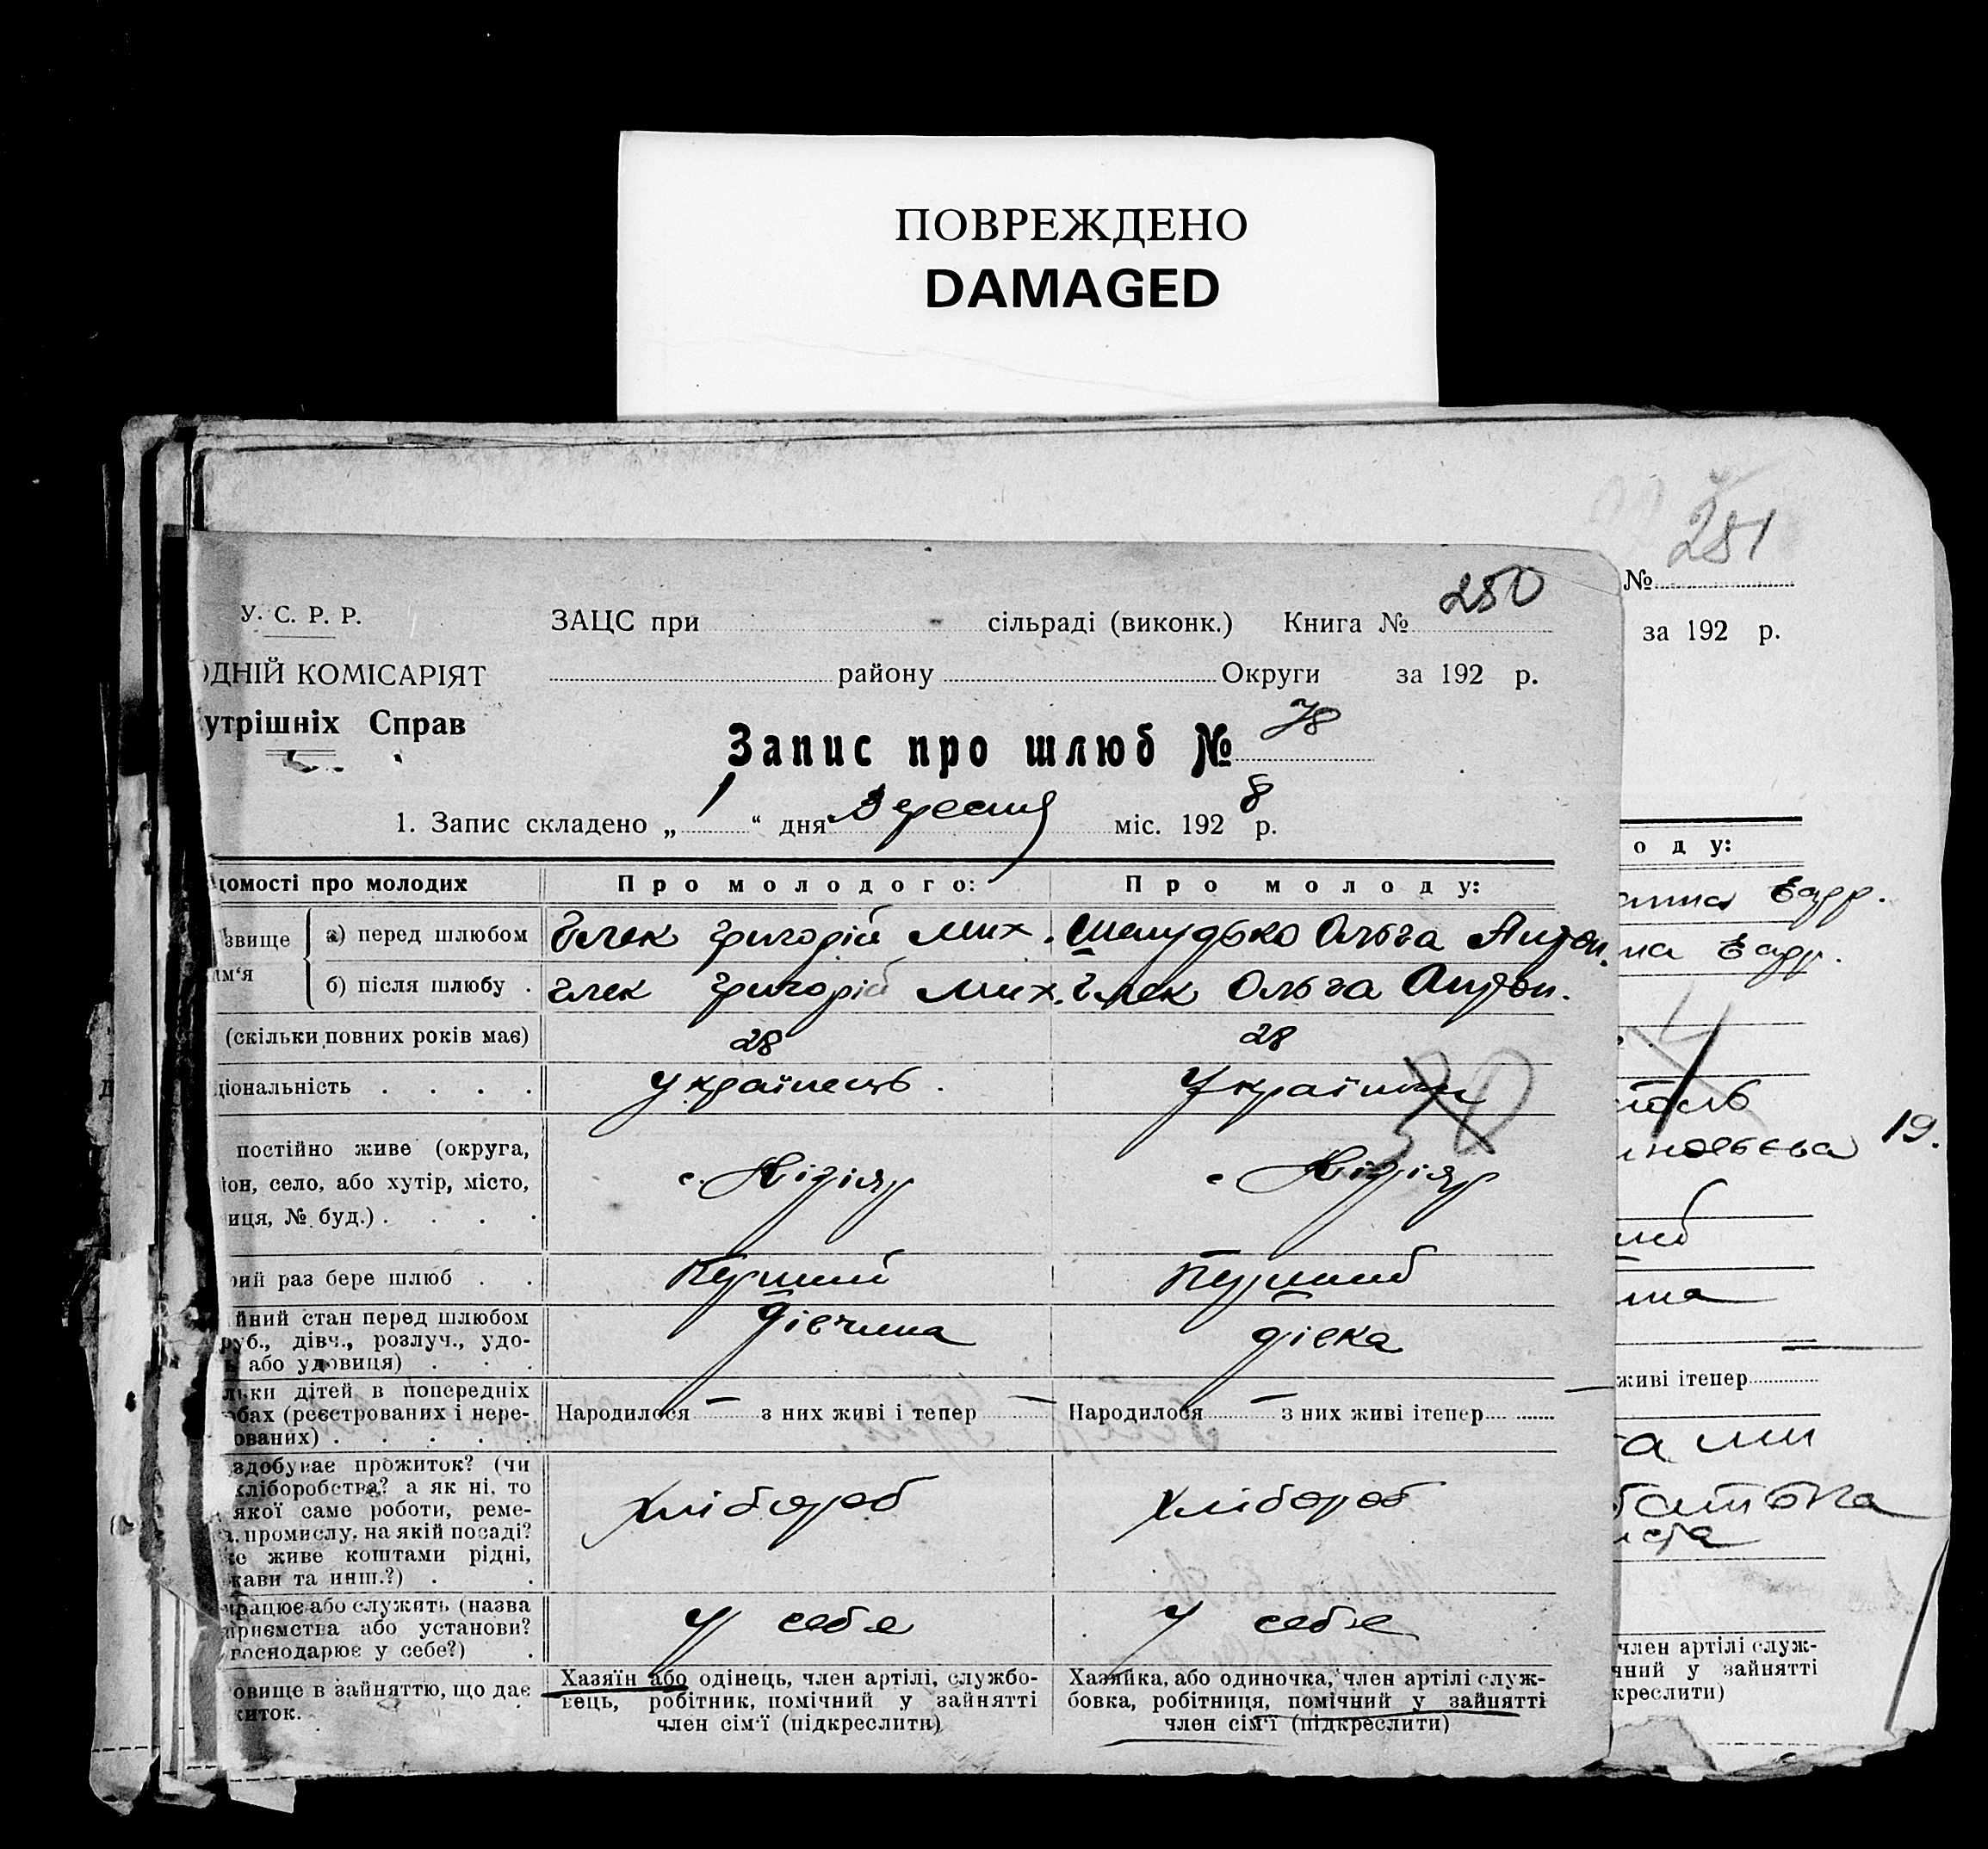 ПОВРЕЖДЕНО
DAMAGED
281
№
за 192 р.
250
У. С. Р. Р.
ЗАЦС при сільраді (виконк.) Книга №
ОДНІЙ КОМІСАРІЯТ
району Округи за 192 р.
утрішніх Справ
Запис про шлюб № 78
1. Запис складено „ 1 “ дня Вересня міс. 1928 р.
домості про молодих
Про молодого:
Про молоду:
оду:
звище
им‘я
а) перед шлюбом
Глек Григорій Мих.
Шелудько Ольга Антон.
б) після шлюбу .
Глек Григорій Мих.
Глек Ольга Антон.
(скільки повних років має)
28
28
ціональність . . . .
Українець.
Українка
30
постійно живе (округа,
он, село, або хутір, місто,
иця, № буд.) . . . .
19.
рий раз бере шлюб . .
Перший
Перший
йний стан перед шлюбом
руб., дівч., розлуч., удо-
або удовиця) . . .
дівчина
дівка
льки дітей в попередніх
бах (реєстрованих і нере-
ованих) . . . . .
Народилося — з них живі і тепер —
Народилося — з них живі ітепер —
живі ітепер
здобуває прожиток? (чи
хліборобства? а як ні, то
якої саме роботи, реме-
а, промислу, на якій посаді?
же живе коштами рідні,
жави та инш.?) . .
Хлібороб
Хлібороб
працює або служить (назва
приємства або установи?
господарює у себе?) .
У себе
У себе
овище в зайняттю, що дає
житок.
Хазяїн або одінець, член артілі, службо-
вець, робітник, помічний у зайнятті
член сім‘ї (підкреслити)
Хазяйка, або одиночка, член артілі служ-
бовка, робітниця, помічний у зайнятті
член сім‘ї (підкреслити)
член артілі служ-
чний у зайнятті
креслити)